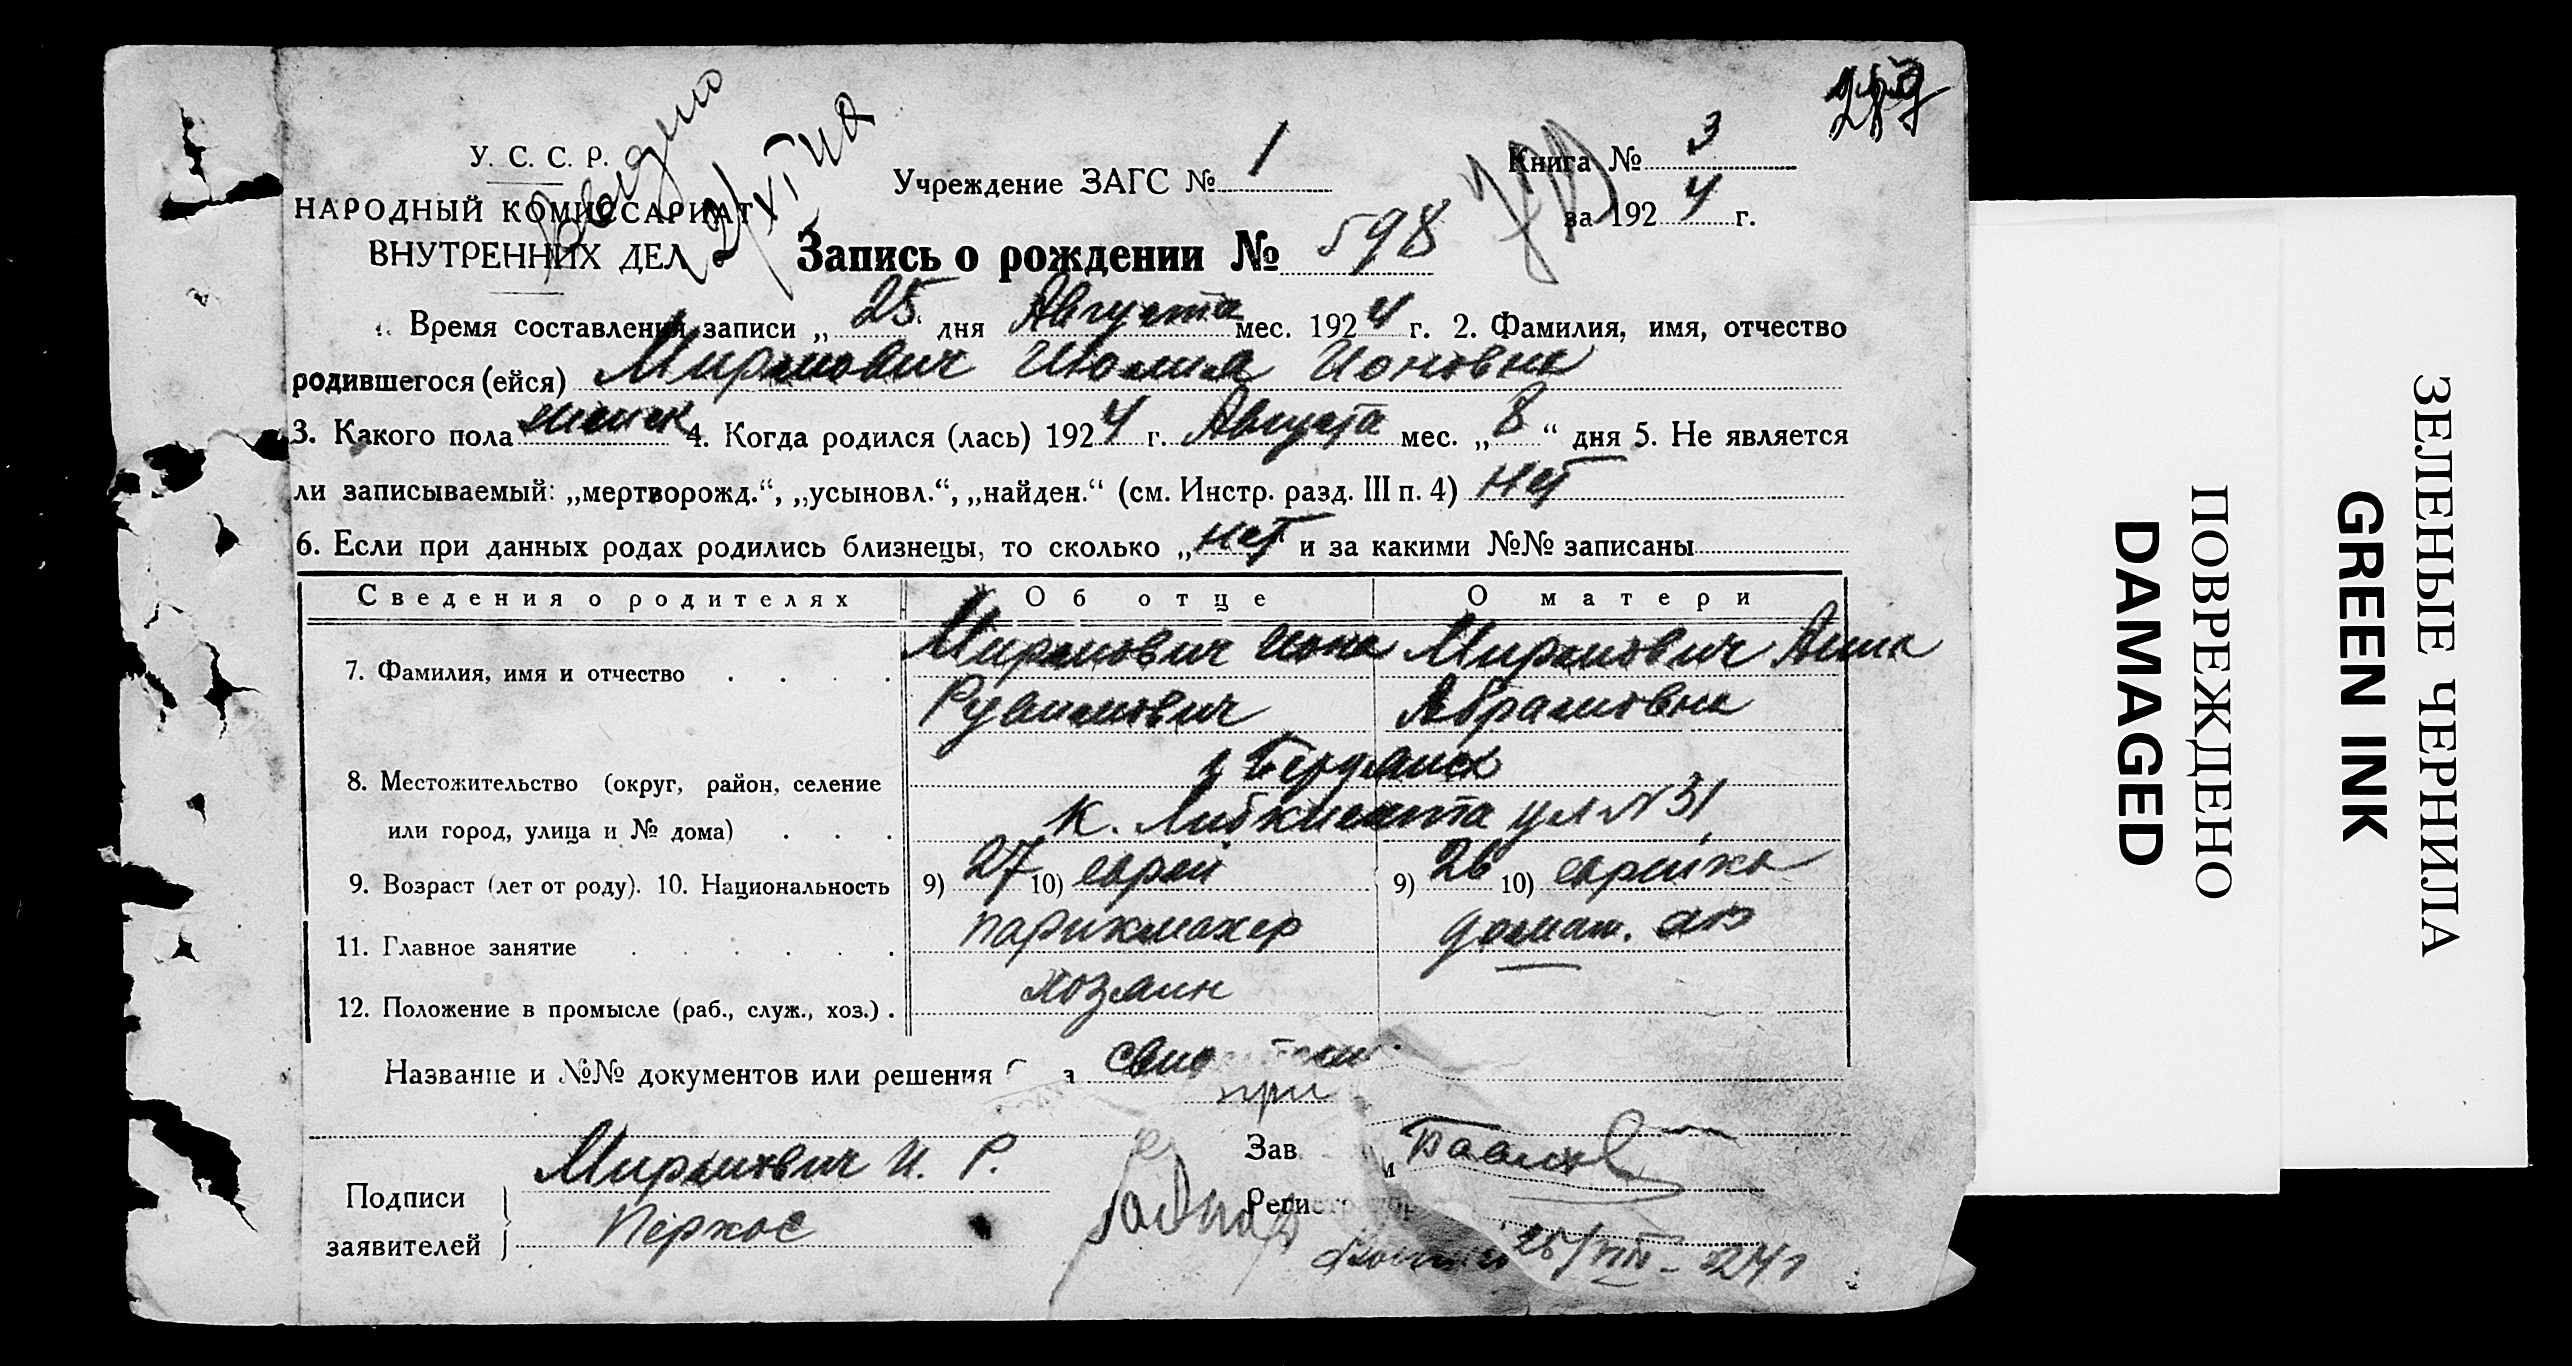 У. С. С. Р.
НАРОДНЫЙ КОМИССАРИАТ
ВНУТРЕННИХ ДЕЛ
Учреждение ЗАГС № 1
Книга № 3
за 1924 г.
Запись о рождении № 598
1. Время составления записи „ 25 " дня Августа мес. 1924 г. 2. Фамилия, имя, отчество
родившегося (ейся) Миримович Июлия Ионовна
3. Какого пола женск 4. Когда родился (лась) 1924 г. Августа мес. „ 8 “ дня 5. Не является
ли записываемый: „мертворожд.“, „усыновл.“, „найден.“ (см. Инстр. разд. III п. 4) нет
6. Если при данных родах родились близнецы, то сколько „ нет и за какими №№ записаны
Сведения о родителях Об отце О матери
7. Фамилия, имя и отчество Миримович Иона Миримович Анна
Рувимович Абрамовна
г Бердянск
8. Местожительство (округ, район, селение
или город, улица и № дома) К. Либкнехта ул № 31
9. Возраст (лет от роду). 10. Национальность 9) 27 10) еврей 9) 26 10) еврейка
11. Главное занятие парикмахер домаш.
12. Положение в промысле (раб., служ., хоз.) хозяин
Название и №№ документов или решения
при
Зав
Подписи
заявителей
Миримович И. Р.
Перкос
25/VIII - 24 г
ЗЕЛЕНЫЕ ЧЕРНИЛА
GREEN INK
ПОВРЕЖДЕНО
DAMAGED